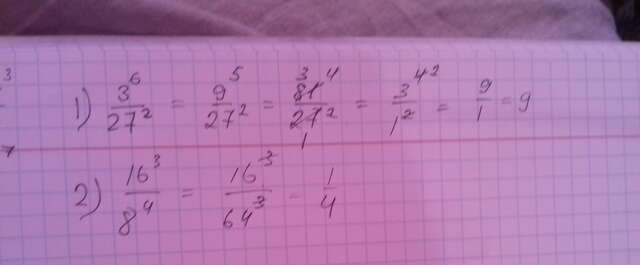 1) 3^6/27^2 = 9^5/27^2 = 81^4/27^2 = 3^42/1^2 = 9/1 = 9
2) 16^3/8^4 = 16^3/64^3 = 1/4